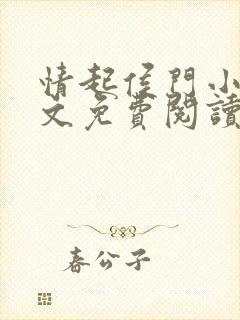 情起侯門小
文免費閱讀
春公子